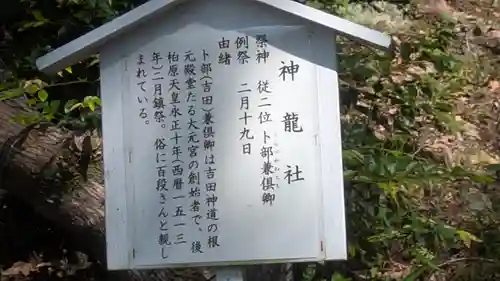 神龍社
祭神 従二位 卜部兼俱卿
例祭 二月十九日
由緒
卜部（吉田）兼俱卿は吉田神道の根
元殿堂たる大元宮の創始者で、後
柏原天皇永正十年（西暦一五一三
年）二月鎮祭。俗に百段さんと親し
まれている。